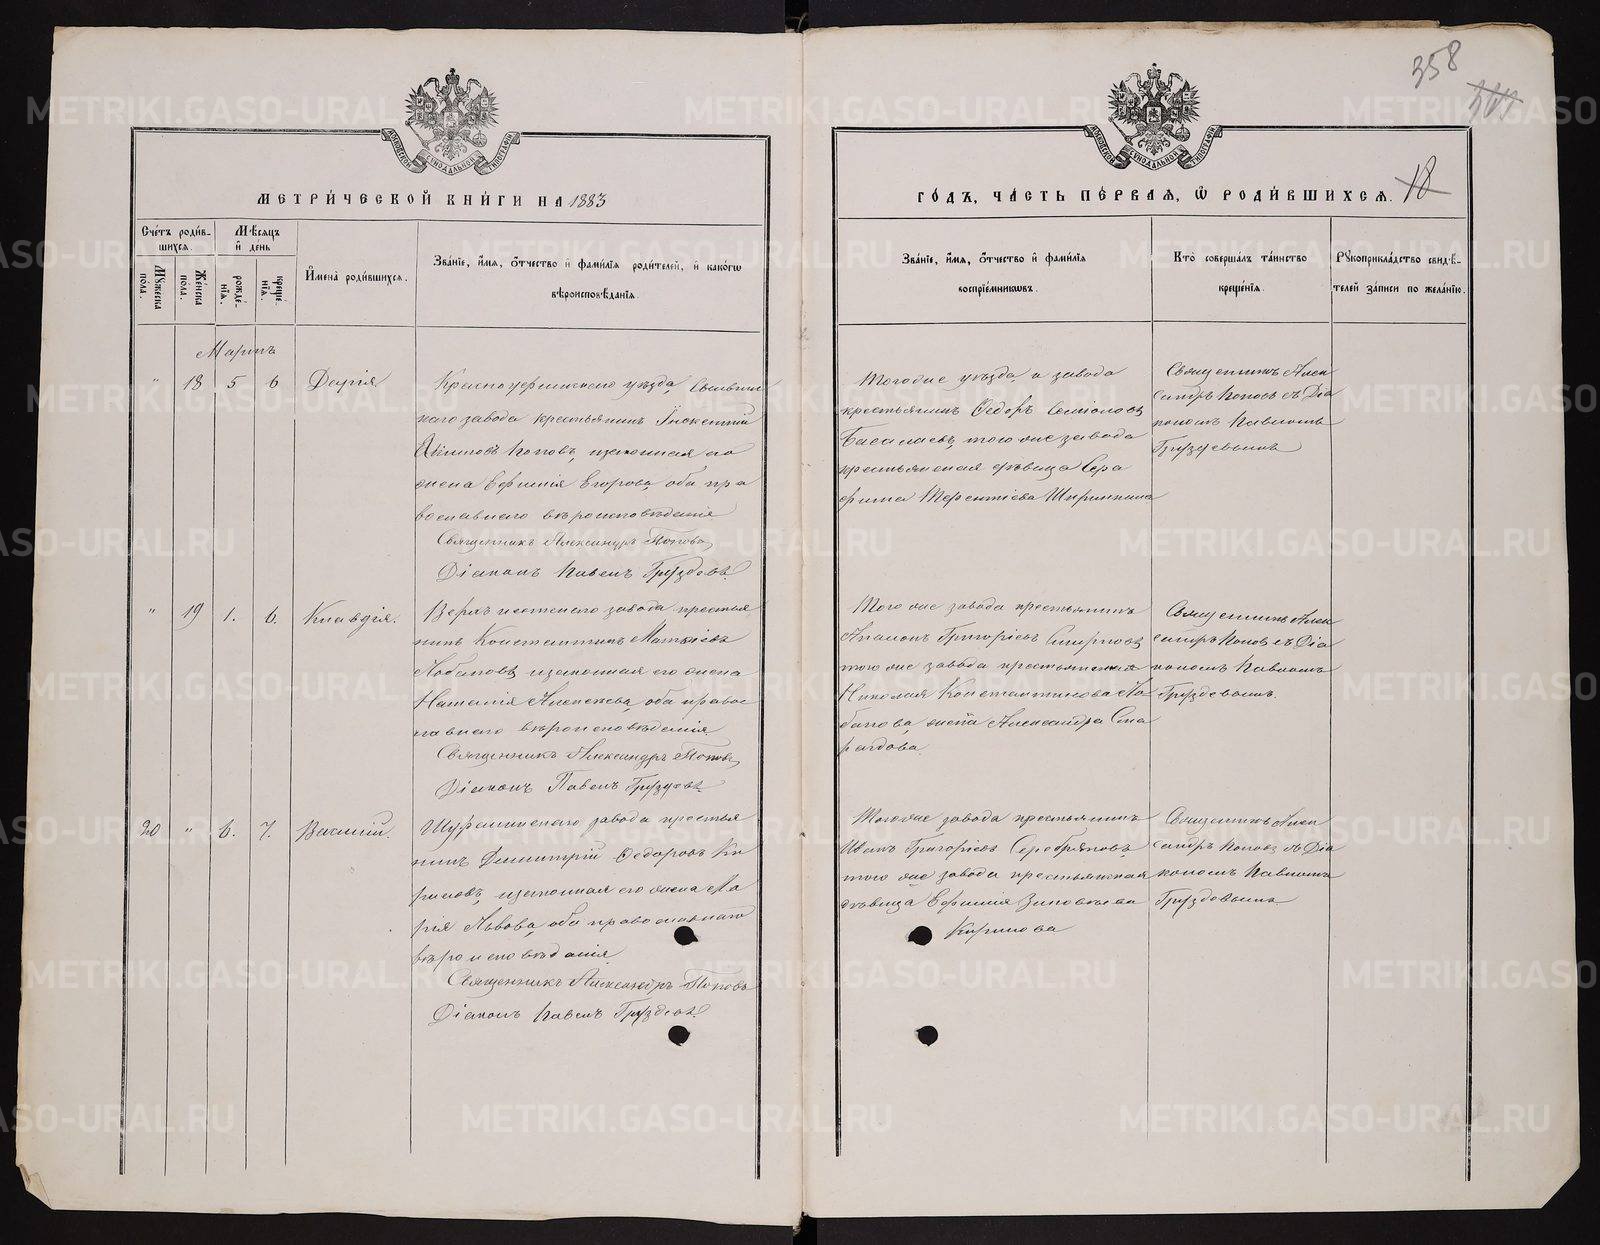 358
МЕТРИ́ЧЕСКОЙ КНИ́ГИ НА 1883
ГО́ДЪ, ЧА́СТЬ ПЕ́РВАѦ, Ѽ РОДИ́ВШИХСѦ.
18
Сче́тъ роди́в-
шихсѧ.
Мѣ́сѧцъ
и҆ де́нь
Мꙋ́жеска
пола.
Же́нска
пола.
рожде́-
нїѧ.
креще́-
нїѧ.
И҆мена̀ роди́вшихсѧ.
Зва́нїе, и҆́мѧ, ѻ҆́тчество и҆ фами́лїѧ роди́телей, и҆ како́гѡ
вѣроисповѣ́данїѧ.
Зва́нїе, и҆́мѧ, ѻ҆́тчество и҆ фами́лїѧ
воспрїе́мникѡвъ.
Кто̀ соверша́лъ та́инство
креще́нїѧ.
Рꙋкоприкла́дство свидѣ́-
телей за́писи по жела́нїю.
Мартъ
" 18 5 6 Дарія
Красноуфимскаго уѣзда, Сылвин
скаго завода крестьянинъ Инокентий
Акимовъ Поповъ, и законная его
жена Ефимія Егорова, оба пра
вославнаго вѣроисповѣданія
Священникъ Александръ Поповъ
Діаконъ Павелъ Груздевъ
Тогоже уѣзда, а завода
крестьянинъ Ѳедоръ
того же завода
крестьянская дѣвица Сера
фима Терентіева Ширинкина
Священникъ Алек
сандръ Поповъ съ Діа
кономъ Павломъ
Груздевымъ
" 19 1. 6. Клавдія.
завода крестья
нинъ Константинъ Матвіевъ
Лобановъ и законная его жена
Наталія Алексѣева, оба правос
лавнаго вѣроисповѣданія
Священникъ Александръ Поповъ
Діаконъ Павелъ Груздевъ
Того же завода крестьянинъ
Григоріевъ Смирновъ
того же завода крестьянина
Николая Константинова Ло
банова, жена Александра Сма
рагдова.
Священникъ Алек
сандръ Поповъ съ Діа
кономъ Павломъ
Груздевымъ.
20 " 6. 7. Василій.
завода крестья
нинъ Димитрій Ѳедоровъ Ки
риловъ, и законная его жена Ма
рія Львова, оба православнаго
вѣроисповѣданія
Священникъ Александръ Поповъ
Діаконъ Павелъ Груздевъ
Того же завода крестьянинъ
Иванъ Григоріевъ Серебряковъ,
того же завода крестьянская
дѣвица Ефимія Зиновьева
Кирилова
Священникъ Алек
сандръ Поповъ съ Діа
кономъ Павломъ
Груздевымъ
METRIKI.GASO-URAL.RU